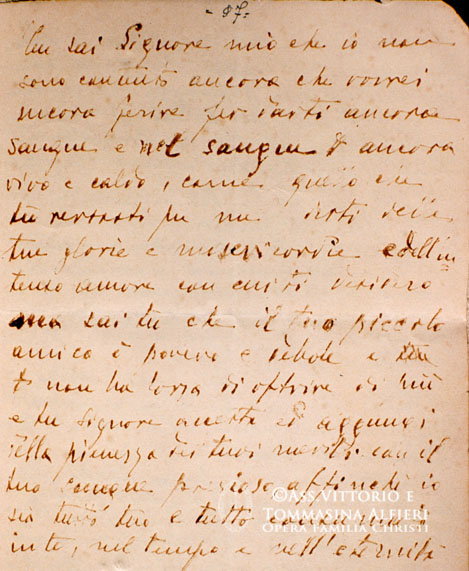 - 87 -
Tu sai Signore mio che io non
sono contento ancora che vorrei
ancora ferire per darti ancora
sangue e nel sangue ancora
vivo e caldo, come quello che
tu versasti per me dirti delle
tue glorie e misericordie e dell'in
tenso amore con cui ti desidero
ma sai tu che il tuo piccolo
amico è povero e debole e
non ha forza di offrire di più
e tu Signore accetta ed aggiungi
della pienezza dei tuoi meriti con il
tuo sangue prezioso affinché io
sia tutto tuo e tutto
in te, nel tempo e nell'eternità
© Ass. Vittorio e
Tommasina Alfieri
Opera Familia Christi